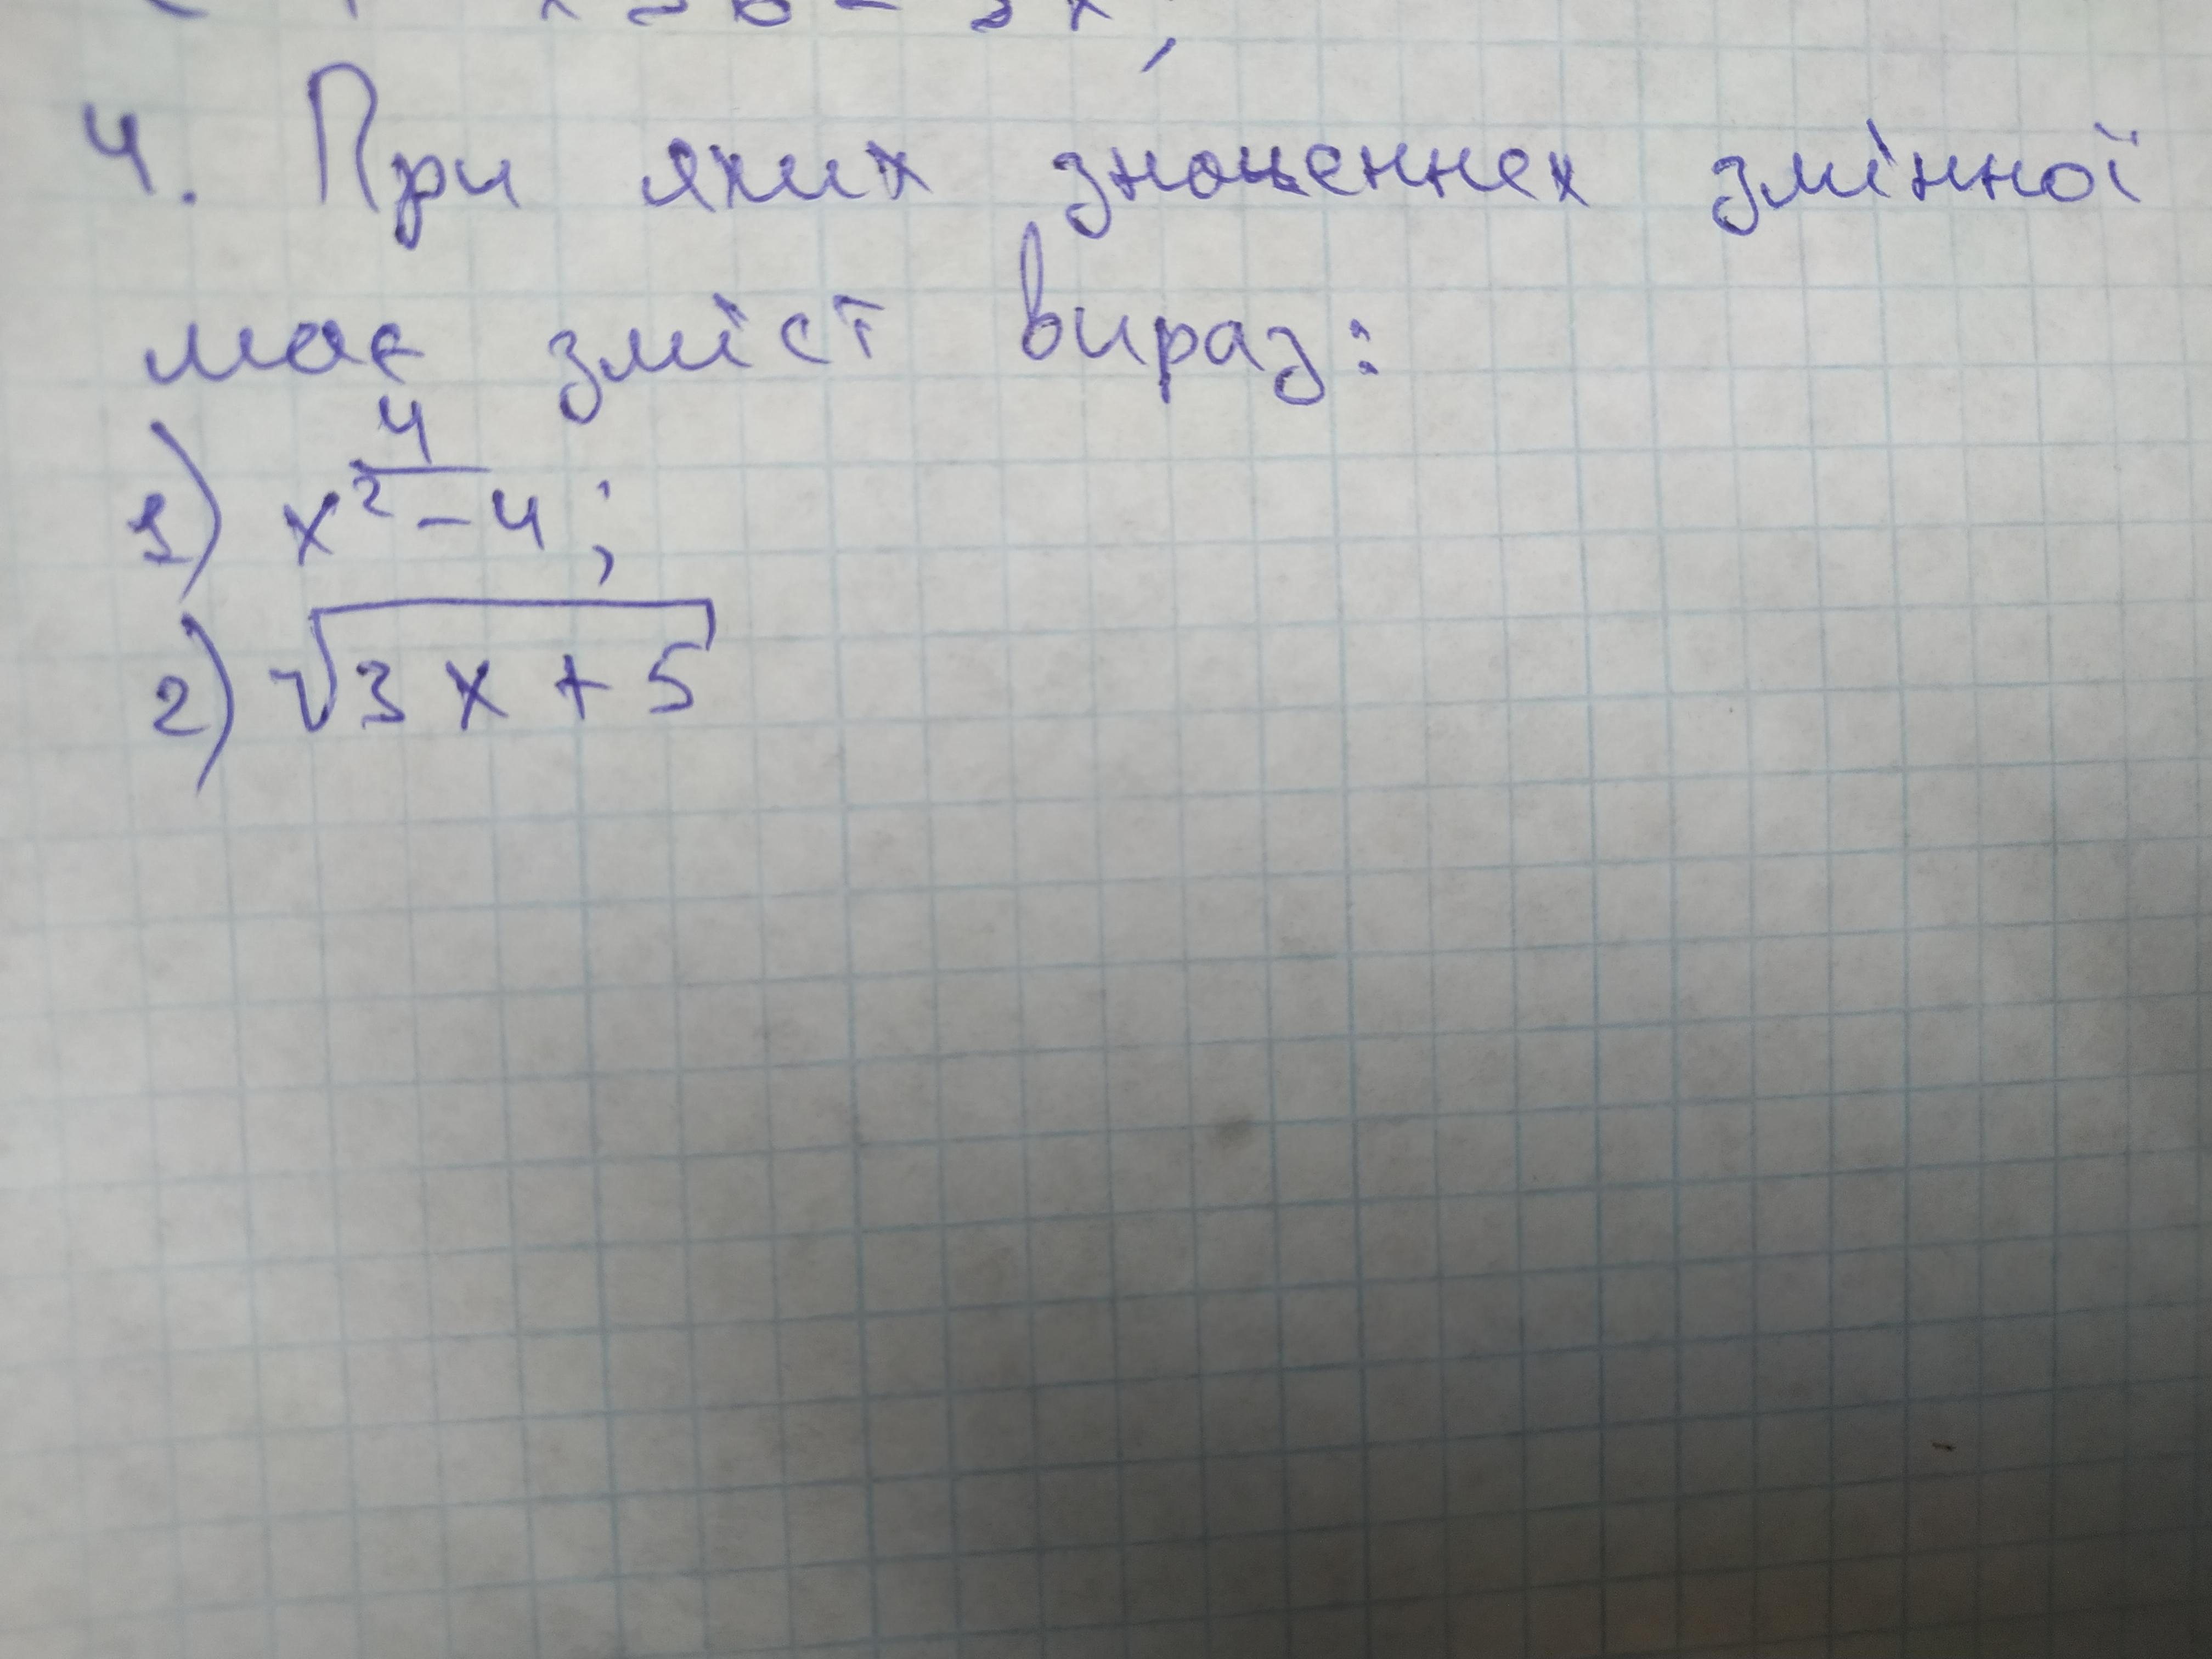 4. При яких значеннях змінної
має зміст вираз:
1) 4/(x² - 4);
2) √(3x + 5)